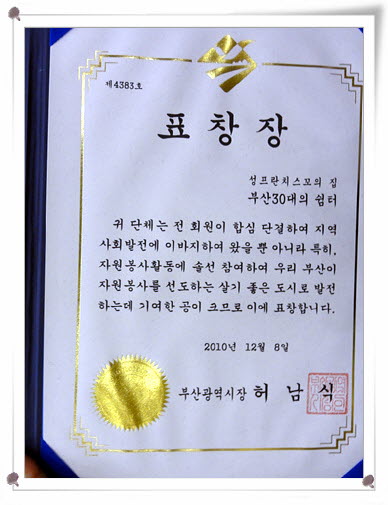 제4383호
표창장
성프란치스꼬의 집
부산30대의 쉼터
귀 단체는 전 회원이 합심 단결하여 지역
사회발전에 이바지하여 왔을 뿐 아니라 특히,
자원봉사활동에 솔선 참여하여 우리 부산이
자원봉사를 선도하는 살기 좋은 도시로 발전
하는데 기여한 공이 크므로 이에 표창합니다.
2010년 12월 8일
부산광역시장 허남식